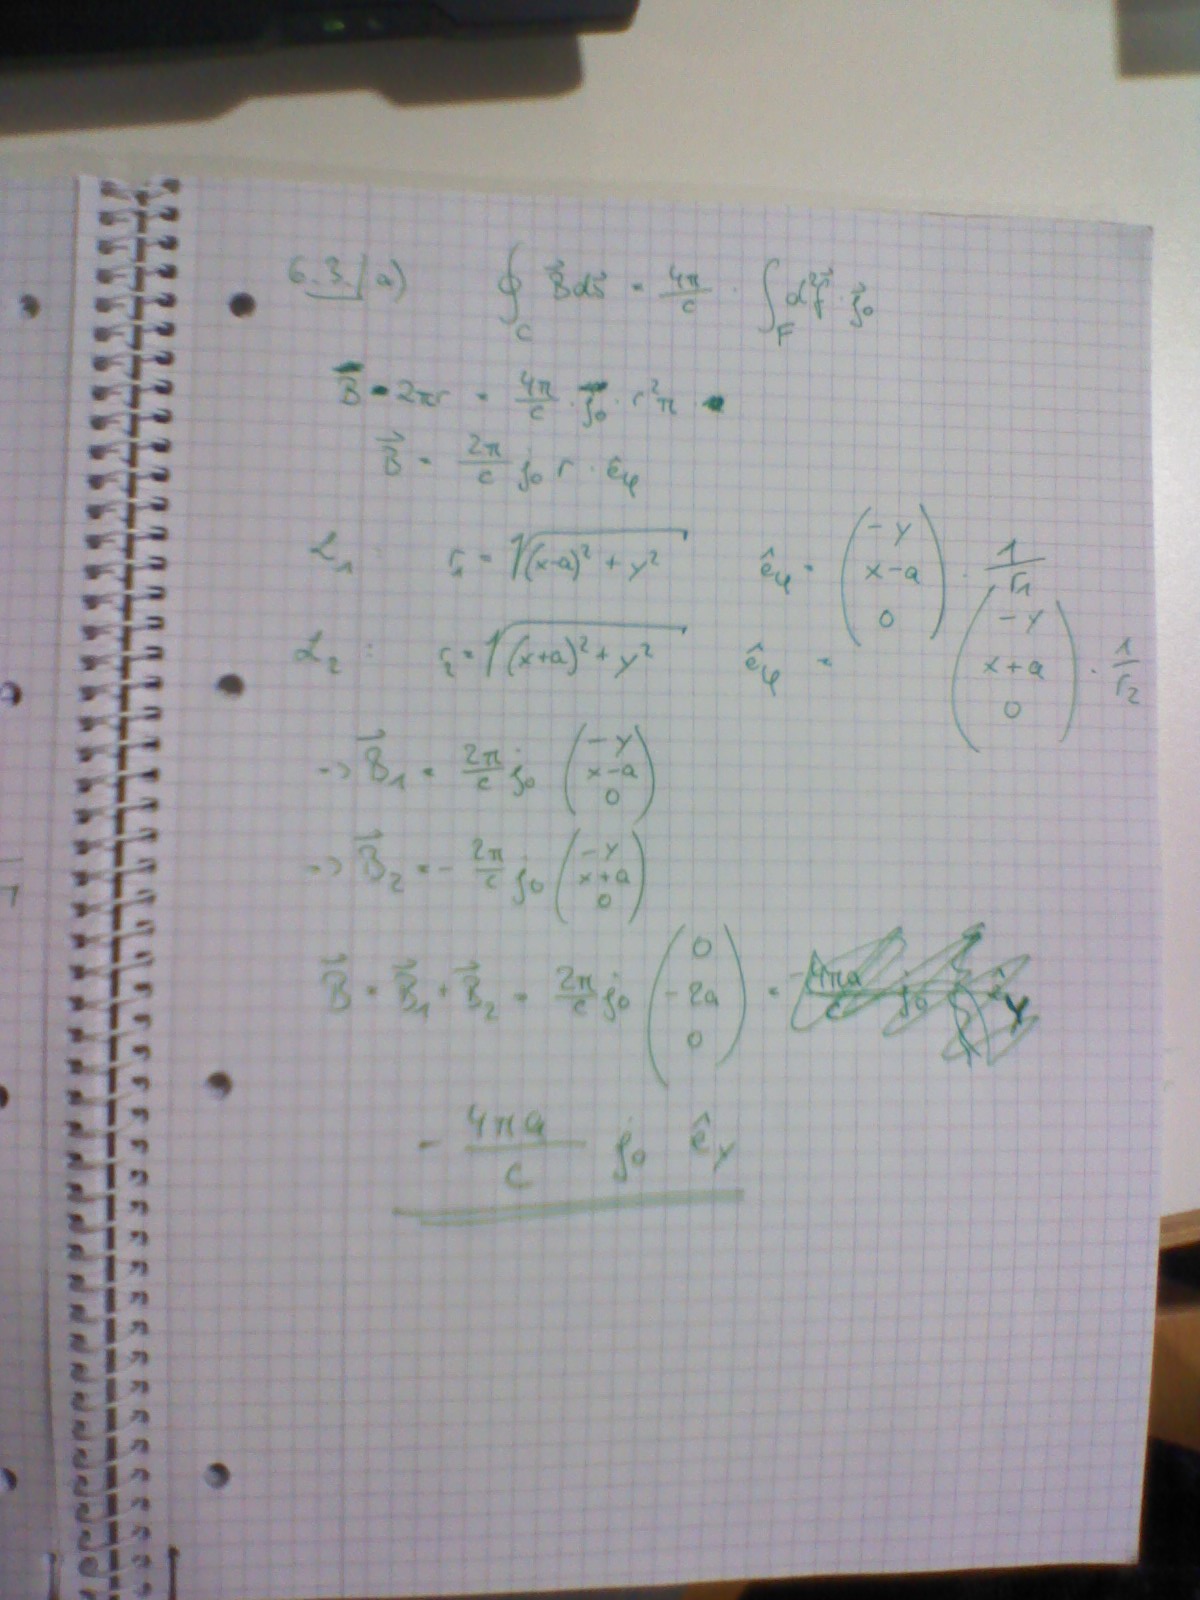 6.3./a) ∮_C B⃗ds⃗ = 4π/c · ∫_F d²f⃗ · j⃗₀
B · 2πr = 4π/c · j₀ · r²π
B⃗ = 2π/c j₀ r · ê_φ
L₁ r₁ = √((x-a)² + y²) ê_φ = (-y, x-a, 0) · 1/r₁
L₂ : r₂ = √((x+a)² + y²) ê_φ = (-y, x+a, 0) · 1/r₂
-> B⃗₁ = 2π/c j₀ (-y, x-a, 0)
-> B⃗₂ = - 2π/c j₀ (-y, x+a, 0)
B⃗ = B⃗₁ + B⃗₂ = 2π/c j₀ (0, -2a, 0) =
- 4πa/c j₀ ê_y